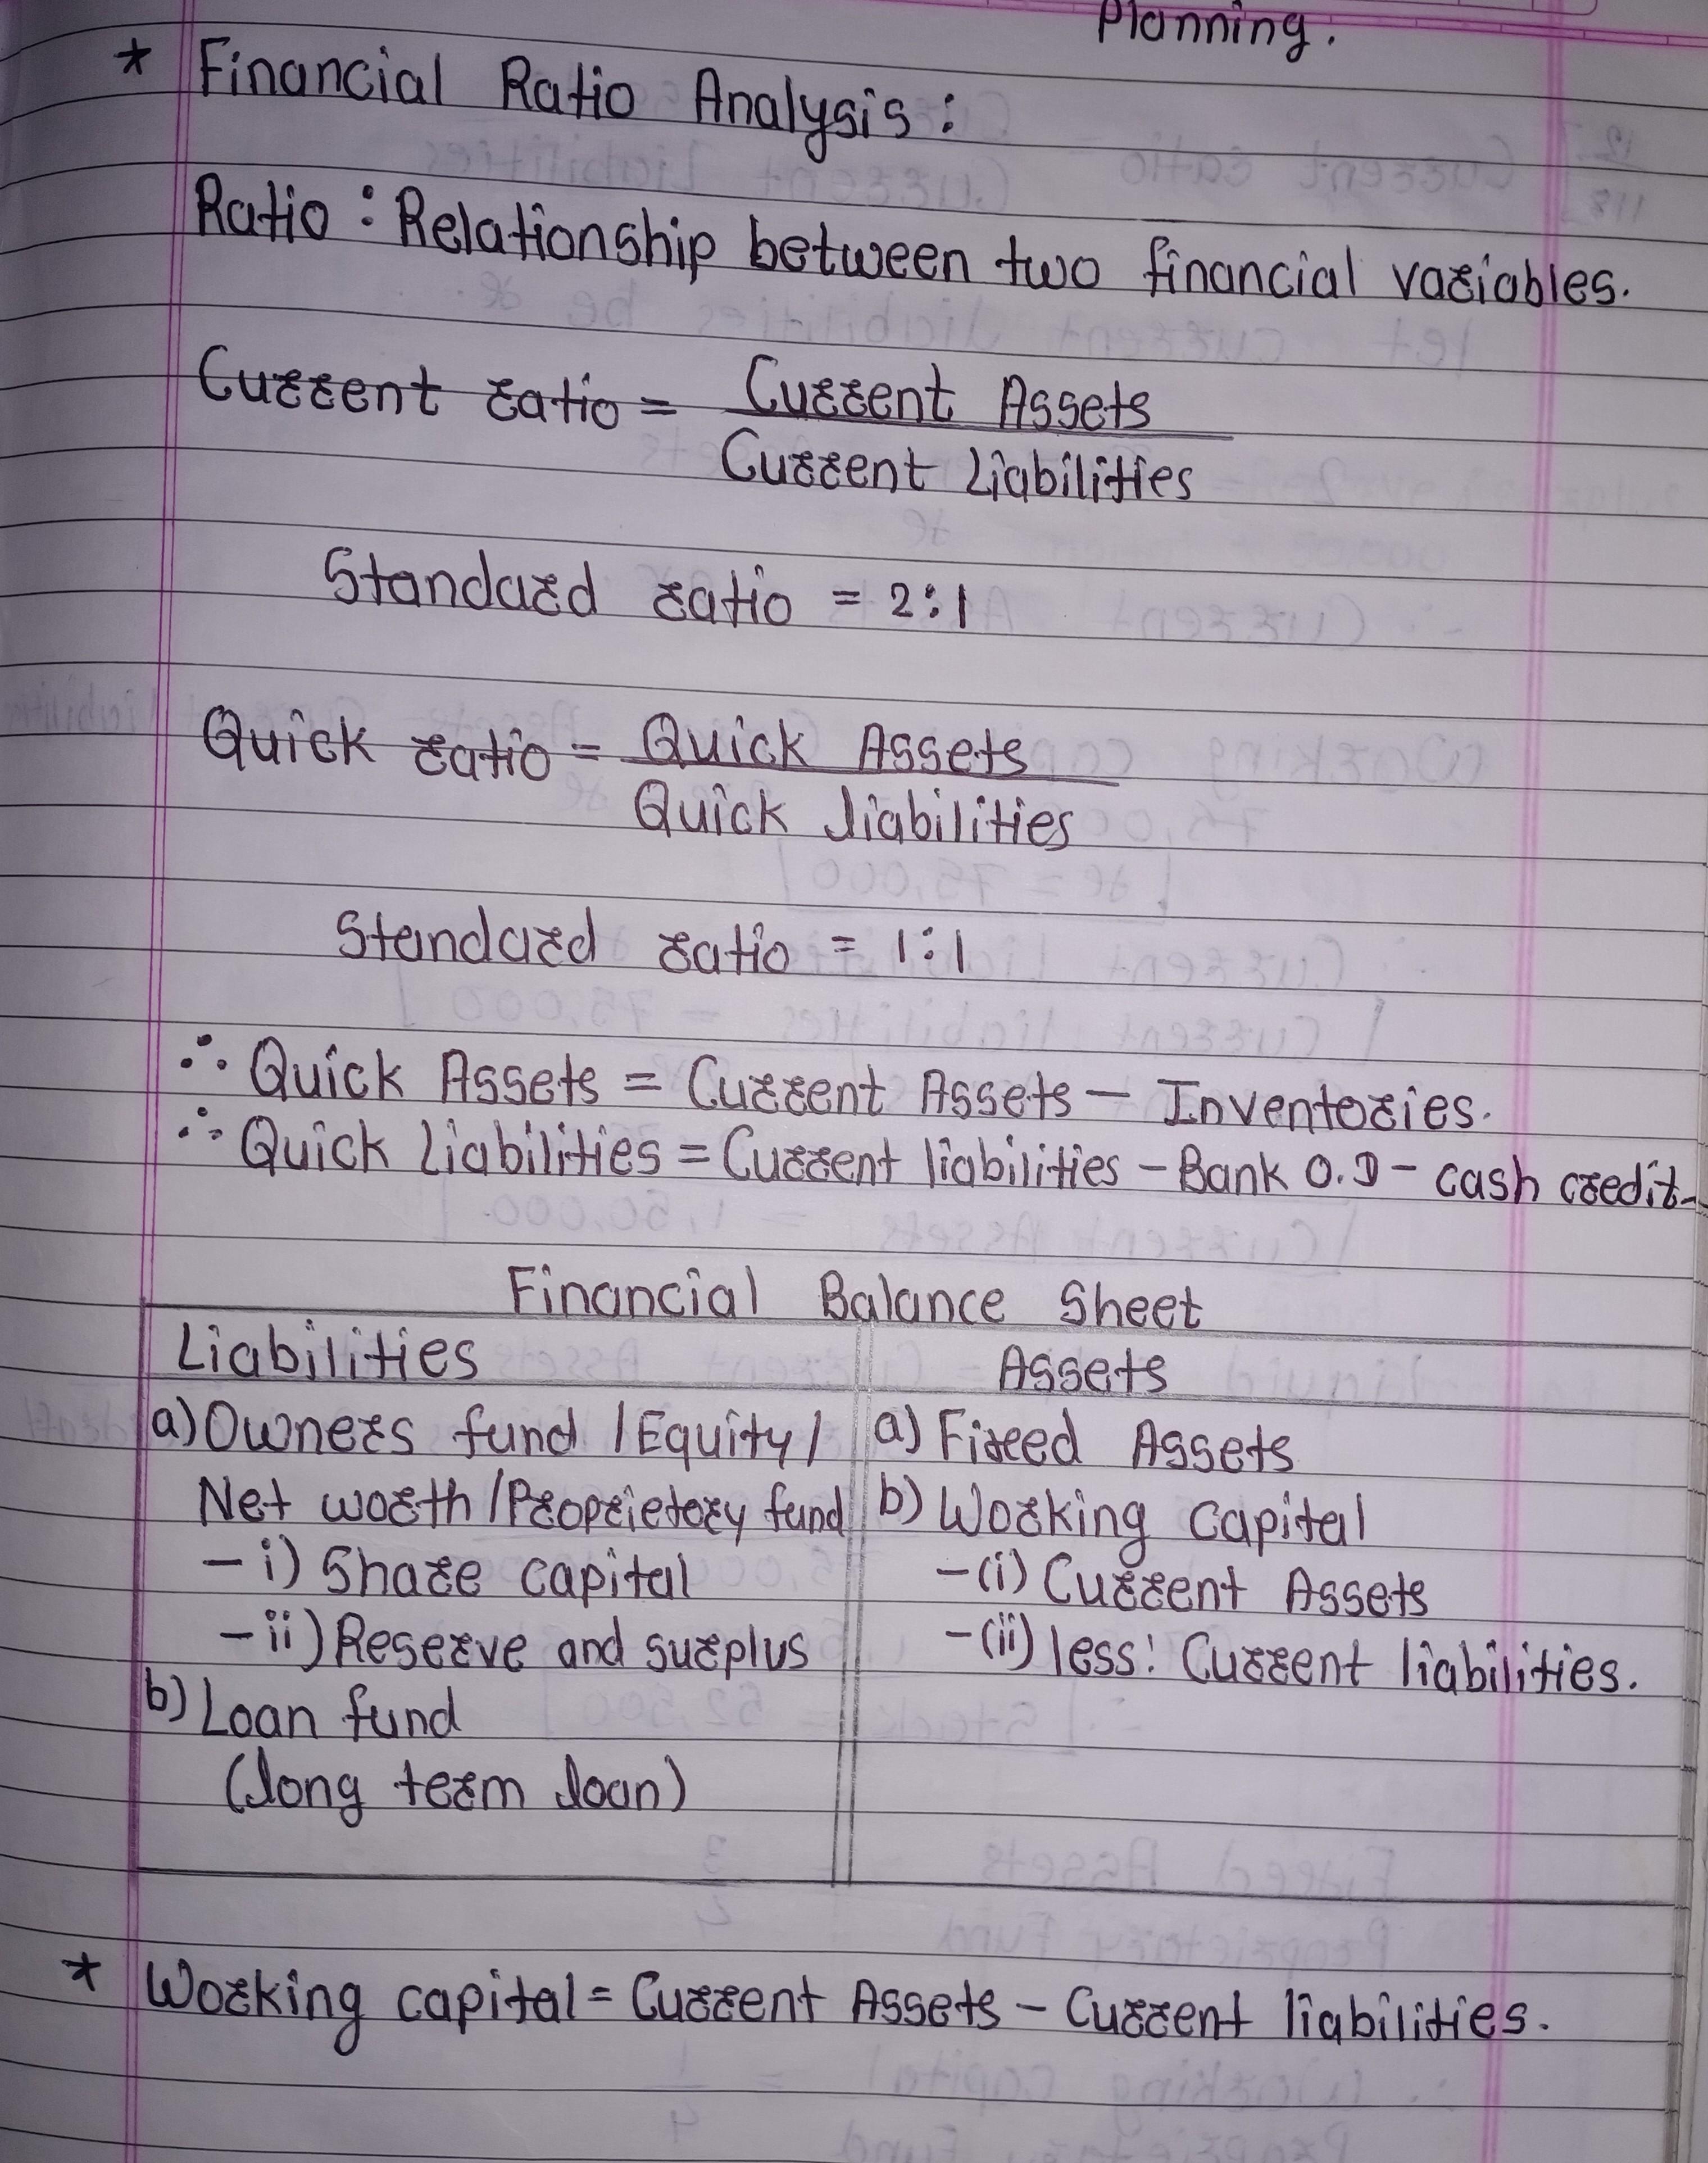 Planning.
* Financial Ratio Analysis :
Ratio : Relationship between two financial variables.
Current ratio = Current Assets
Current Liabilities
Standard ratio = 2:1
Quick ratio = Quick Assets
Quick liabilities
Standard ratio = 1:1
∴ Quick Assets = Current Assets – Inventories.
∴ Quick Liabilities = Current liabilities – Bank O.D – cash credit.
Financial Balance Sheet
Liabilities Assets
a) Owners fund / Equity / a) Fixed Assets
Net worth / Proprietory fund b) Working capital
– i) Share capital – (i) Current Assets
– ii) Reserve and surplus – (ii) less: Current liabilities.
b) Loan fund
(long term loan)
* Working capital = Current Assets – Current liabilities.